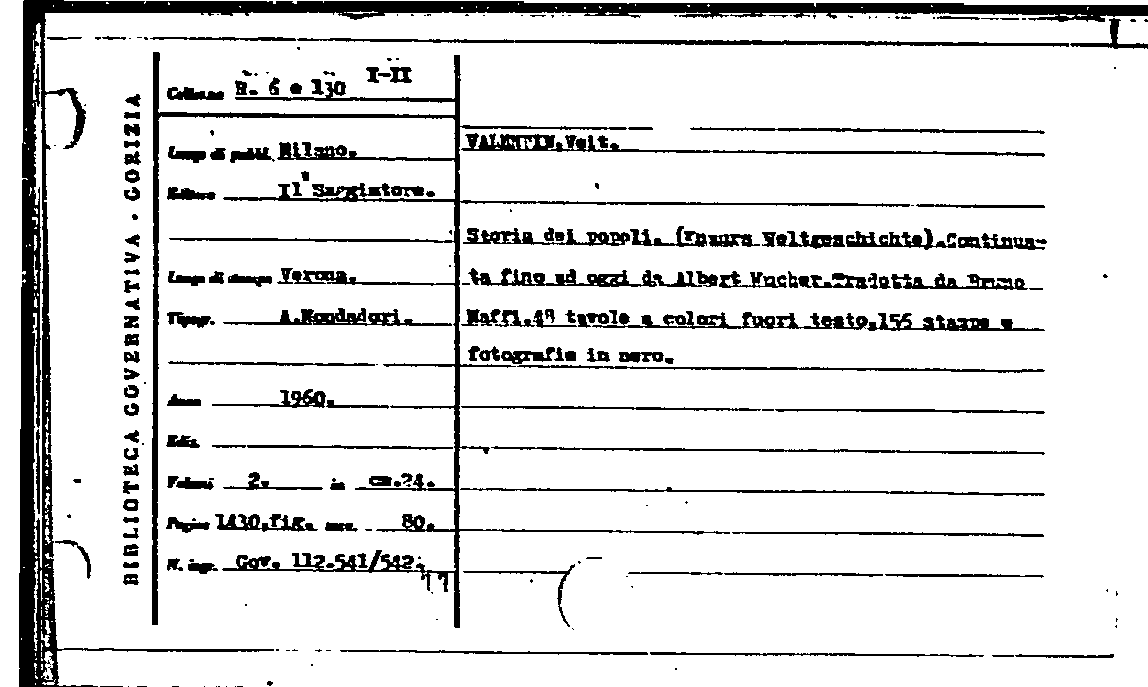 BIBLIOTECA GOVERNATIVA - GORIZIA
I-II
Colloc.ne R. 6 e 130
Luogo di pubbl. Milano.
Editore Il Saggiatore.
Luogo di stampa Verona.
Tipogr. A.Mondadori.
Anno 1960.
Ediz.
Volumi 2. in cm.24.
Pagine 1430,fig. 80.
N. ingr. Gov. 112.541/542.
VALENTIN,Veit.
Storia dei popoli. (Knaurs Weltgeschichte).Continua-
ta fino ad oggi da Albert Wucher.Tradotta da Bruno
Maffi.48 tavole a colori fuori testo,155 stampe e
fotografie in nero.